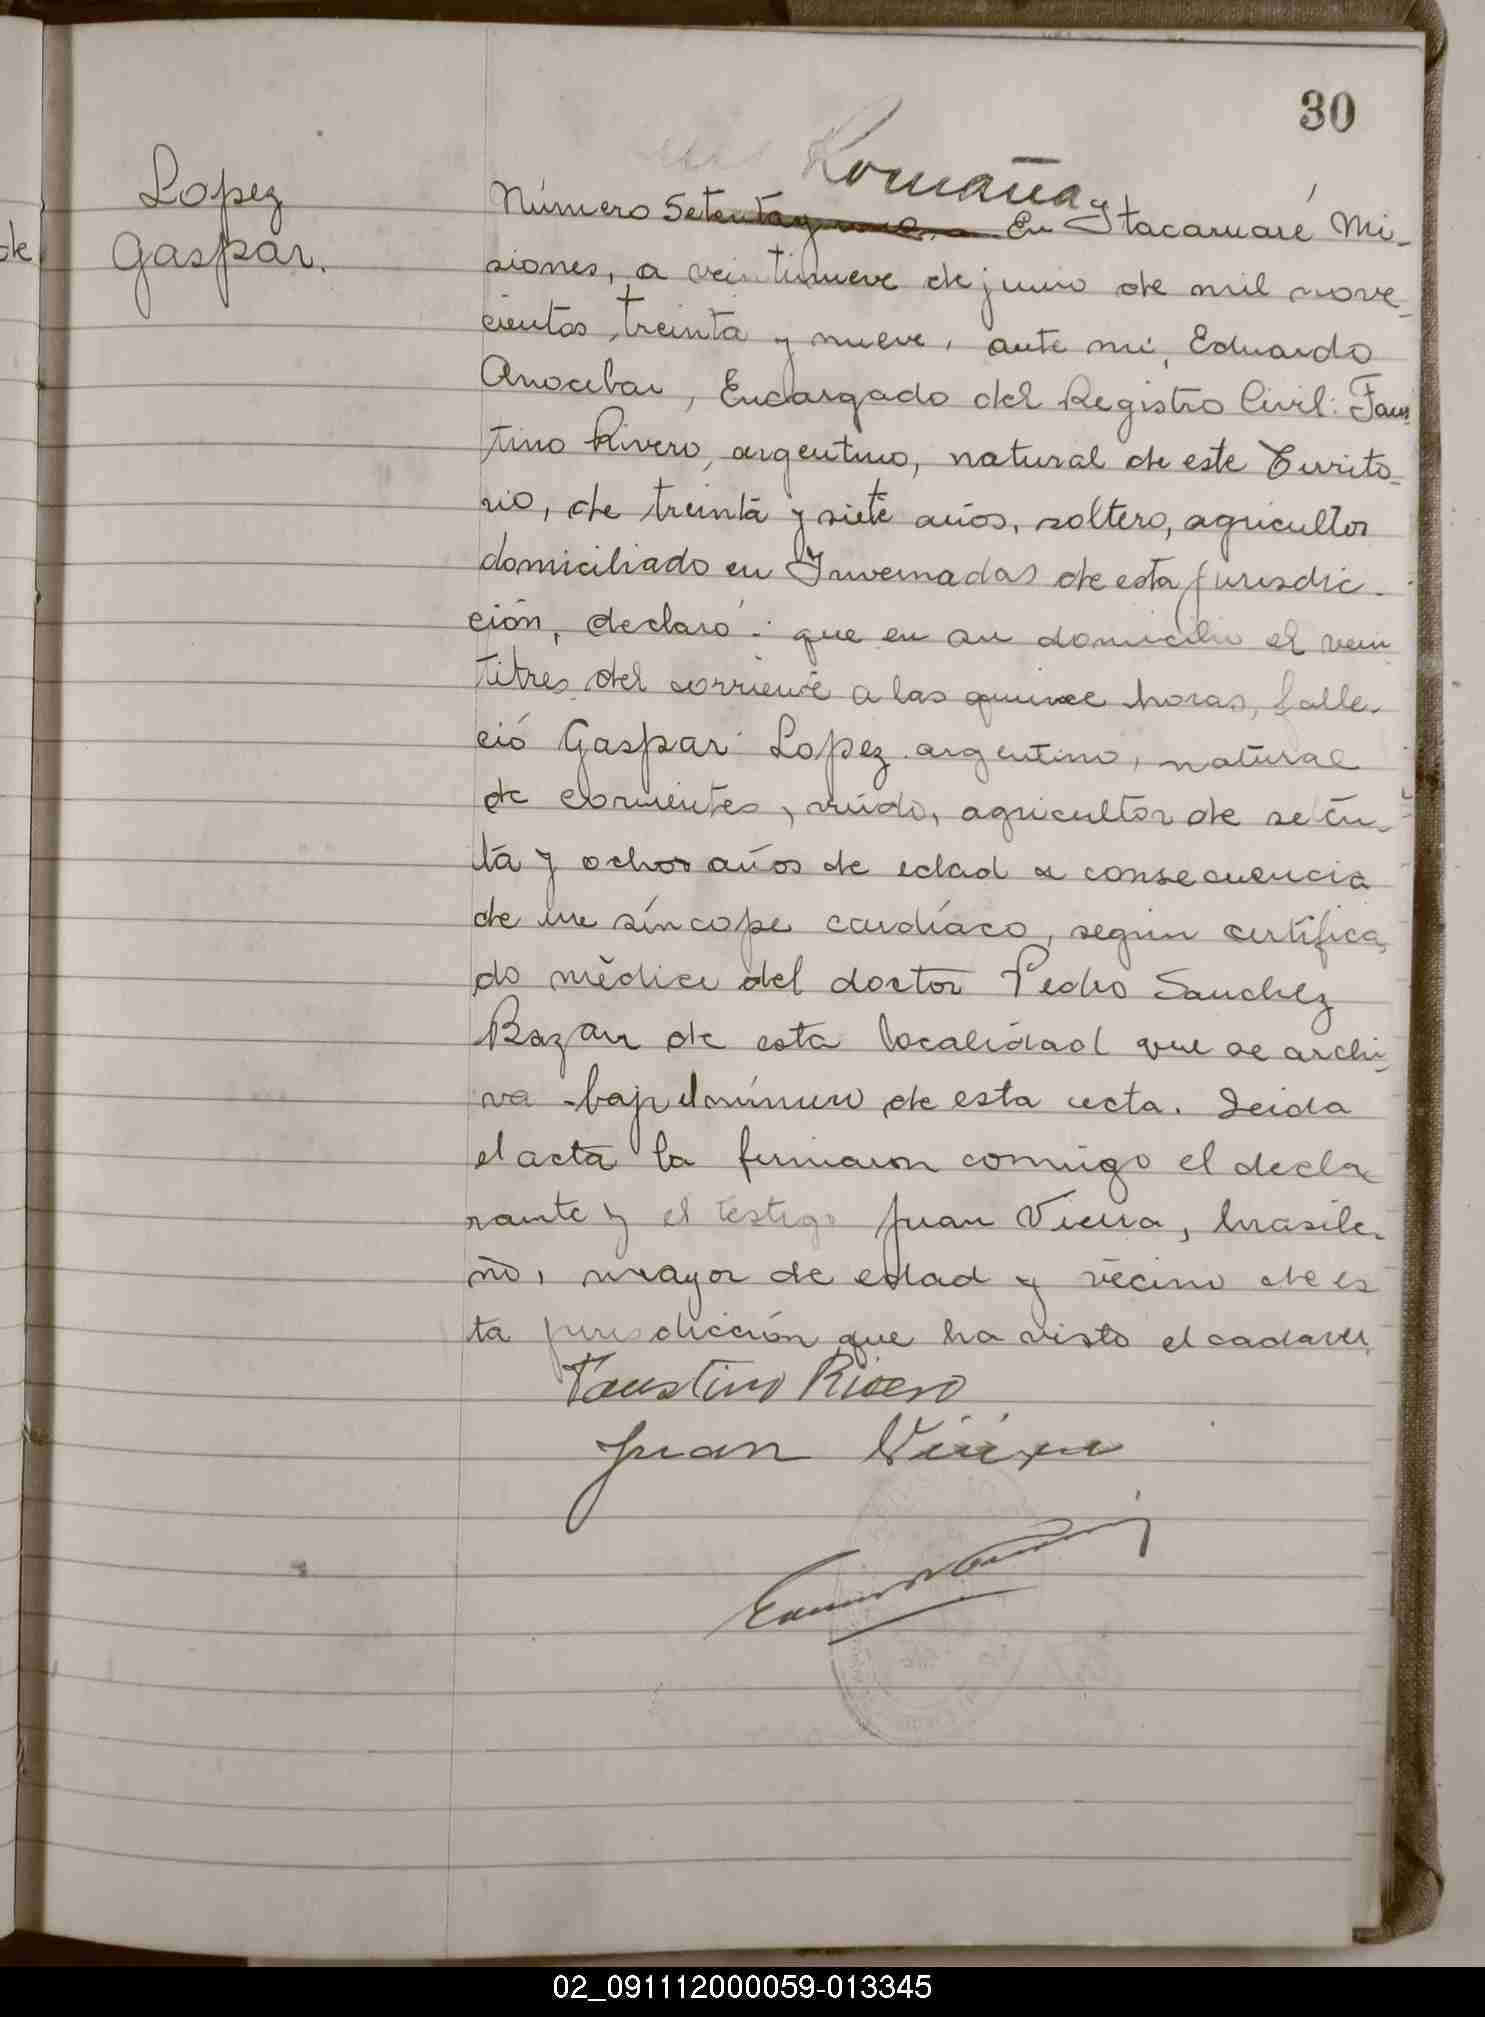 30
Lopez
Gaspar.
de
Romaña
Número Setenta y En Itacaruaré Mi-
siones, a veintinueve de junio de mil nove-
cientos treinta y nueve, ante mi, Eduardo
Anocibar, Encargado del Registro Civil: Faus
tino Rivero, argentino, natural de este Territo-
rio, de treinta y siete años, soltero, agricultor
domiciliado en Invernadas de esta jurisdic-
ción, declaró: que en su domicilio el vein
titres del corriente a las quince horas, falle-
ció Gaspar Lopez argentino, natural
de Corrientes, viudo, agricultor de seten-
ta y ocho años de edad a consecuencia
de un síncope cardíaco, según certifica
do médico del doctor Pedro Sanchez
Bazan de esta localidad que se archi-
va bajo el número de esta acta. Leida
el acta la firmaron conmigo el decla
rante y el testigo Juan Vieira, brasile-
ño, mayor de edad y vecino de es
ta jurisdicción que ha visto el cadaver.
Faustino Rivero
Juan Vieira
02_091112000059-013345